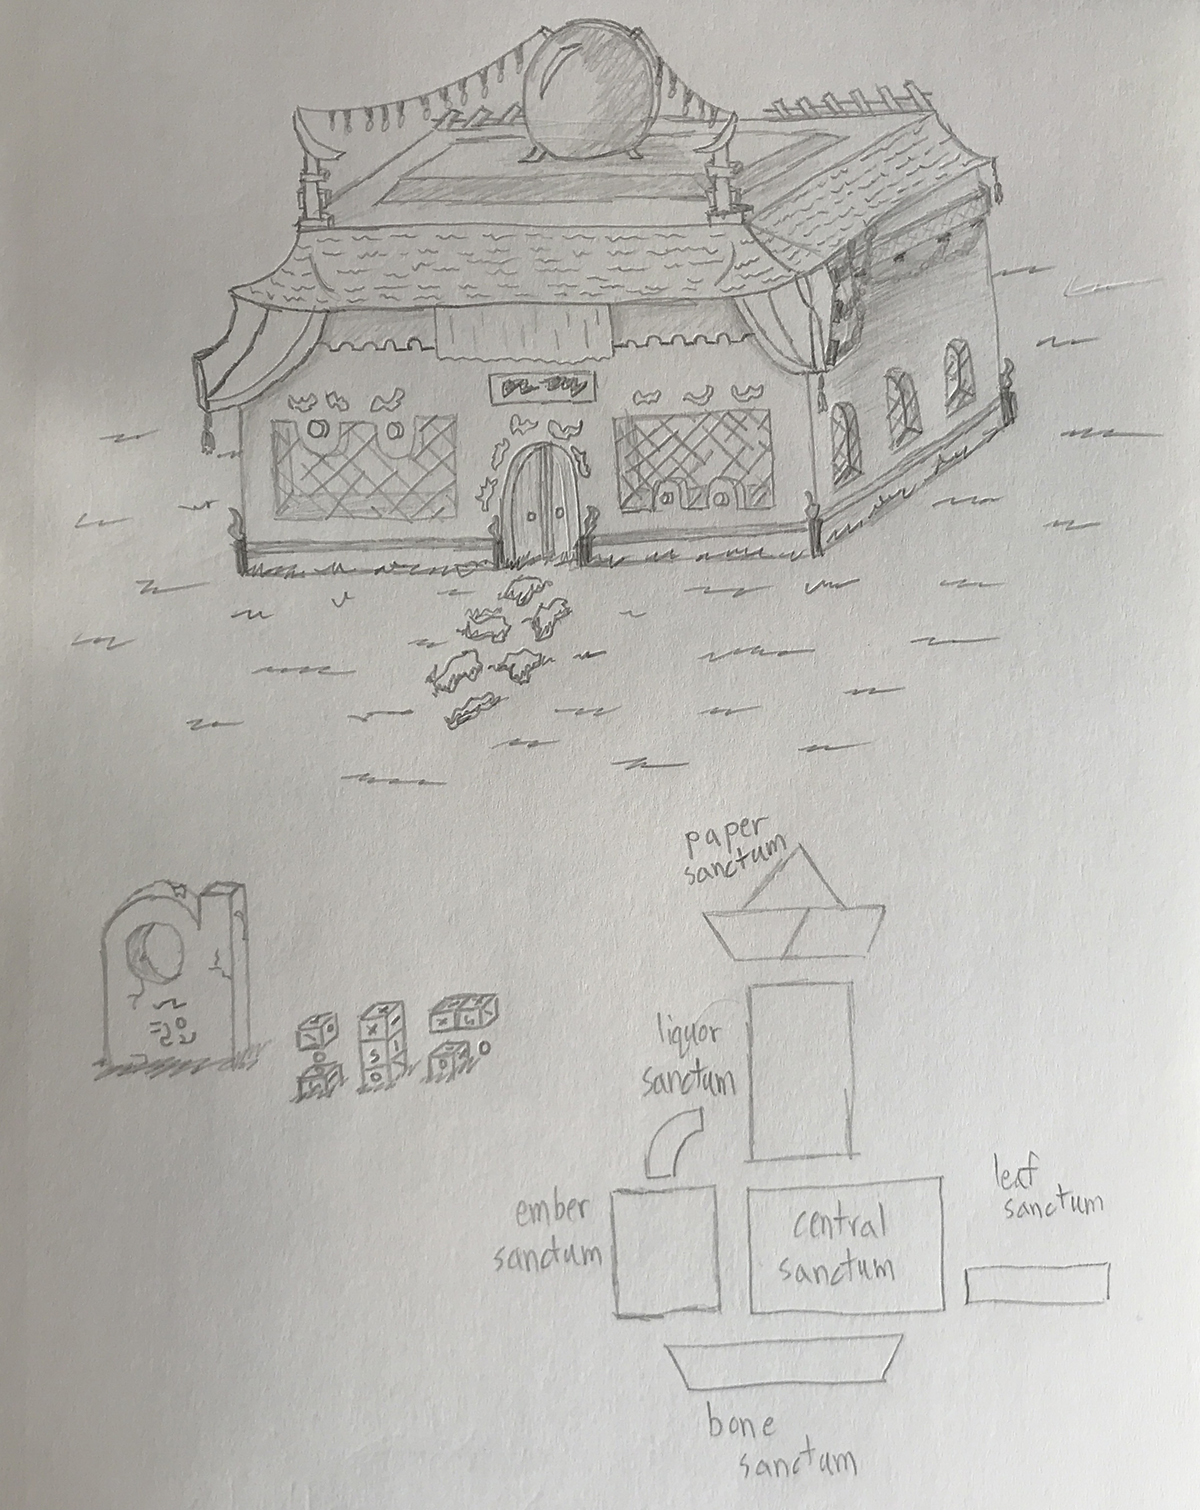 paper
sanctum
liquor
sanctum
ember
sanctum
central
sanctum
leaf
sanctum
bone
sanctum